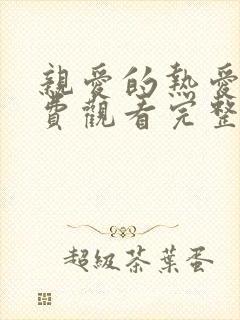 親愛的熱愛
費觀看完整
超級茶葉蛋